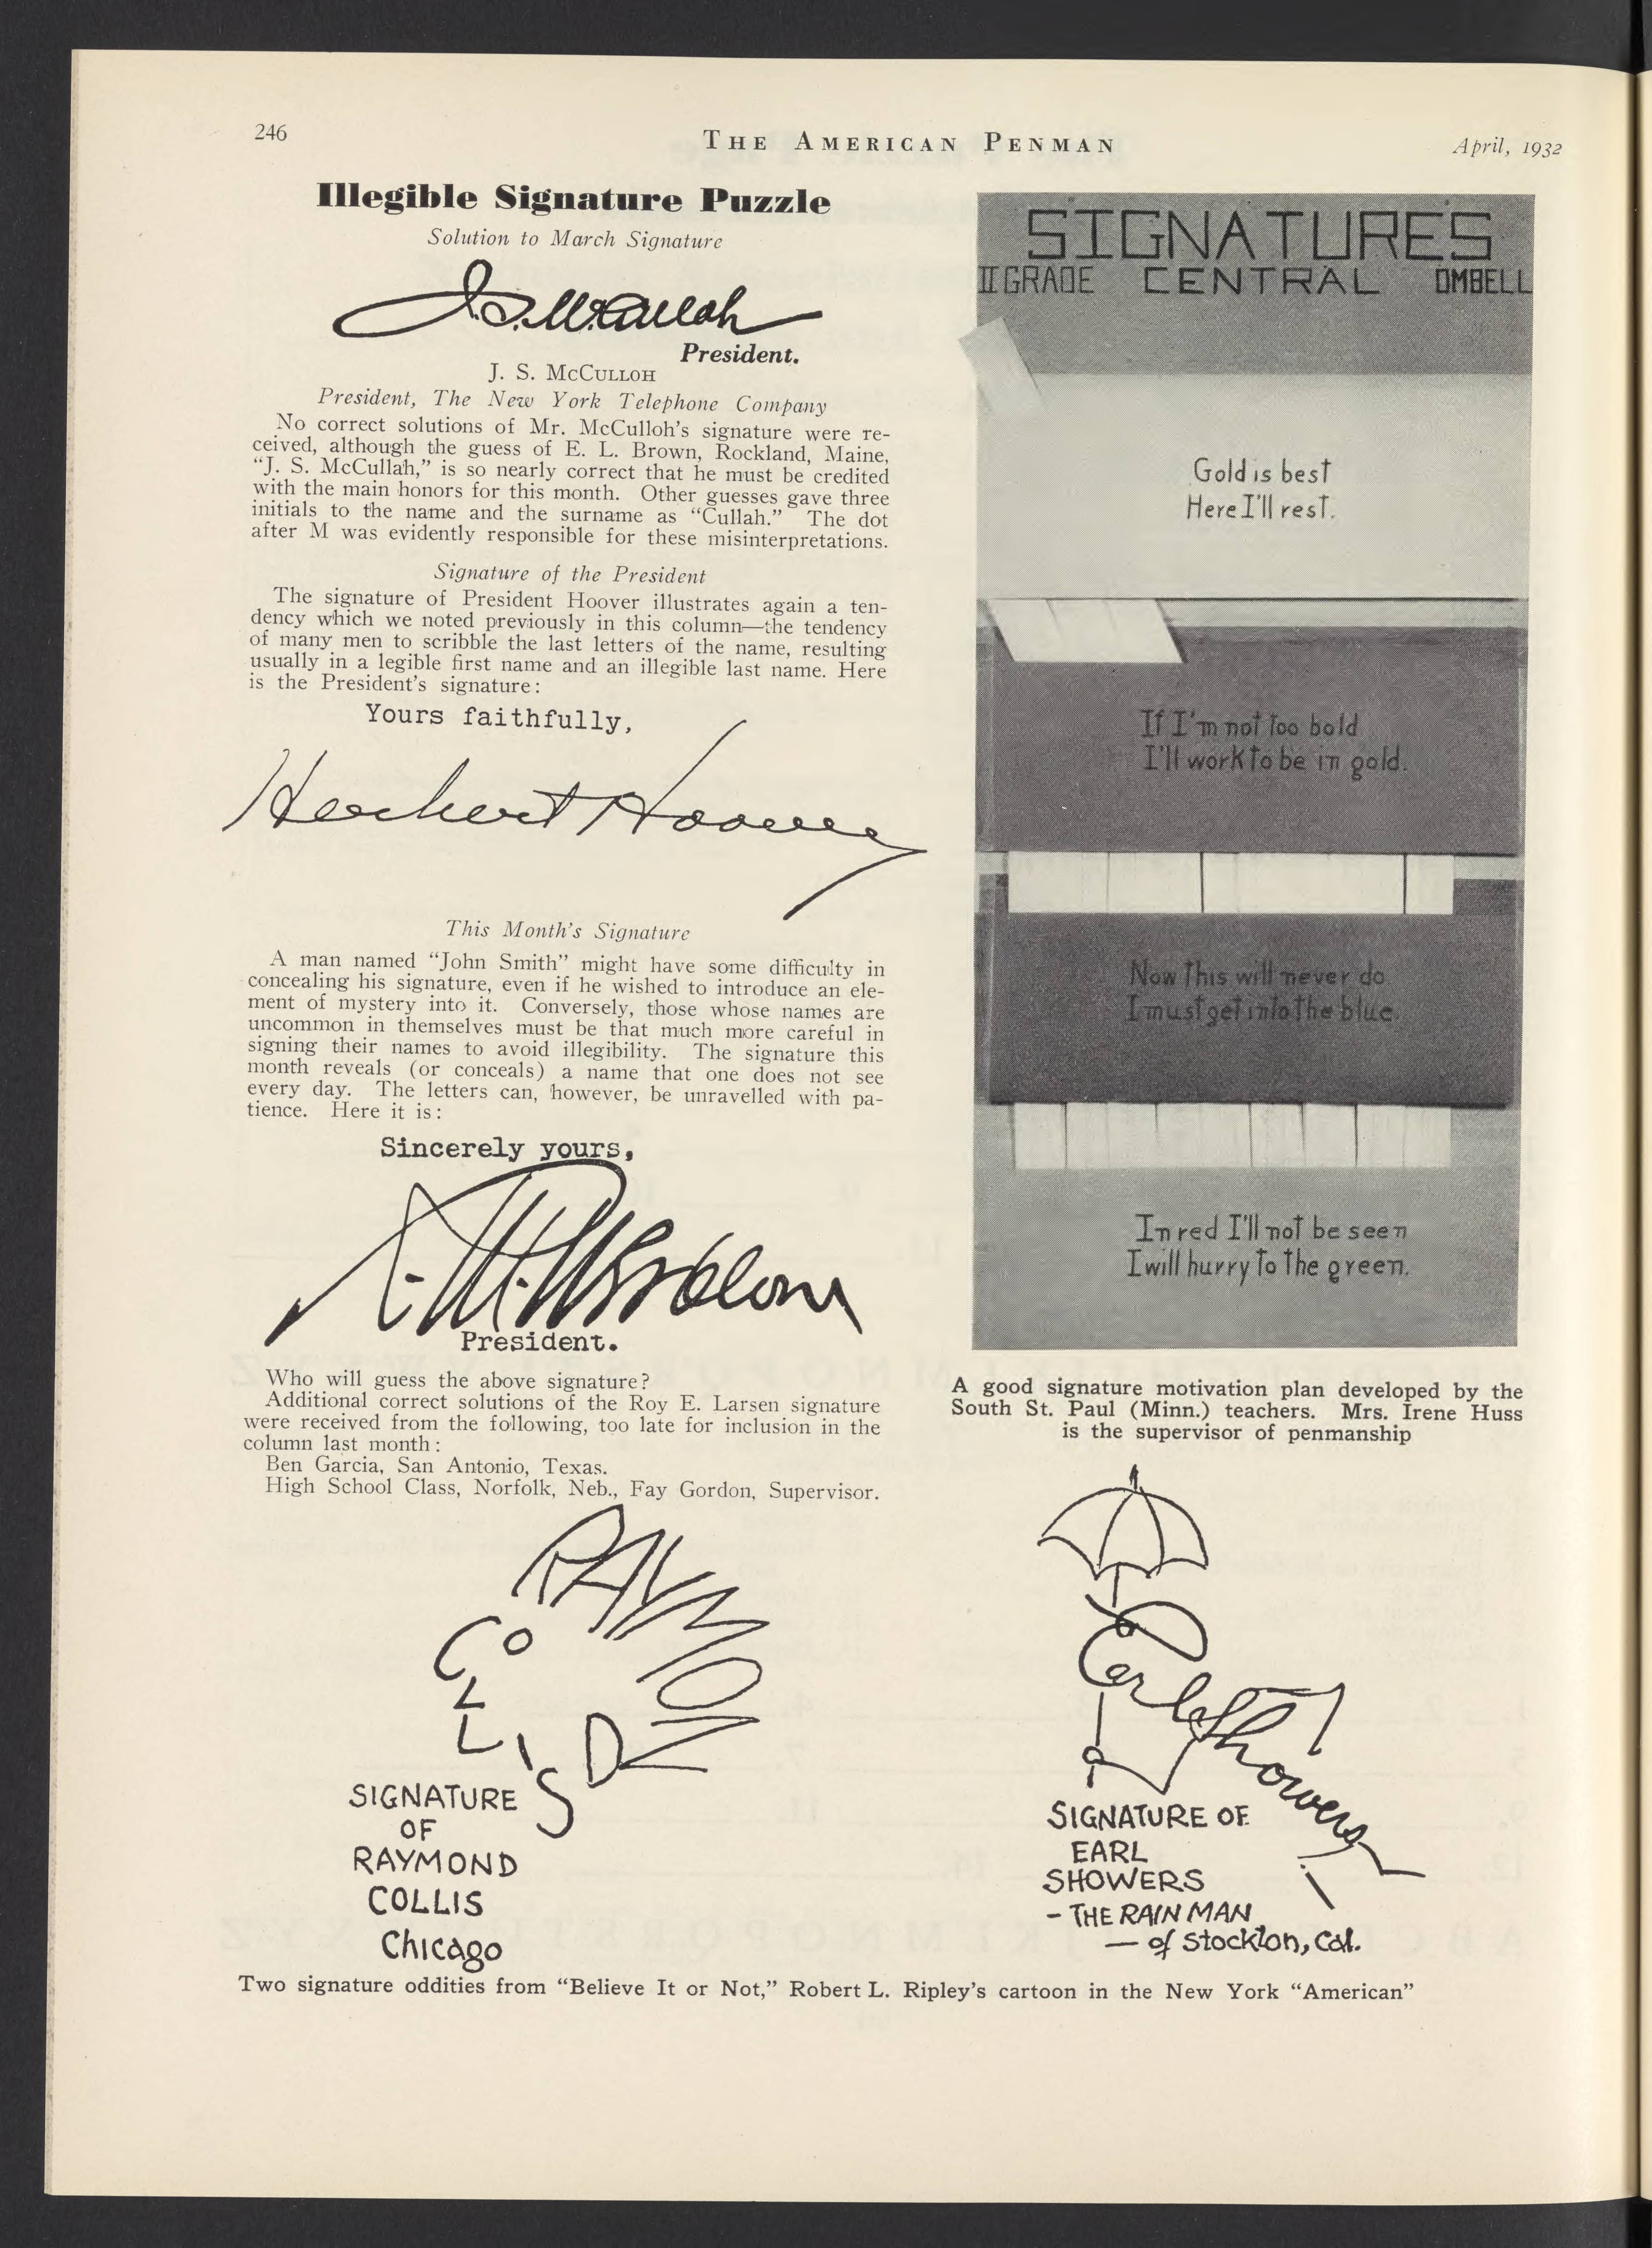 246
THE AMERICAN PENMAN
April, 1932
Illegible Signature Puzzle
Solution to March Signature
J. S. McCulloh
President.
J. S. MCCULLOH
President, The New York Telephone Company
No correct solutions of Mr. McCulloh's signature were re-
ceived, although the guess of E. L. Brown, Rockland, Maine,
"J. S. McCullah," is so nearly correct that he must be credited
with the main honors for this month. Other guesses gave three
initials to the name and the surname as "Cullah." The dot
after M was evidently responsible for these misinterpretations.
Signature of the President
The signature of President Hoover illustrates again a ten-
dency which we noted previously in this column—the tendency
of many men to scribble the last letters of the name, resulting
usually in a legible first name and an illegible last name. Here
is the President's signature:
Yours faithfully,
Herbert Hoover
This Month's Signature
A man named "John Smith" might have some difficulty in
concealing his signature, even if he wished to introduce an ele-
ment of mystery into it. Conversely, those whose names are
uncommon in themselves must be that much more careful in
signing their names to avoid illegibility. The signature this
month reveals (or conceals) a name that one does not see
every day. The letters can, however, be unravelled with pa-
tience. Here it is:
Sincerely yours,
President.
Who will guess the above signature?
Additional correct solutions of the Roy E. Larsen signature
were received from the following, too late for inclusion in the
column last month:
Ben Garcia, San Antonio, Texas.
High School Class, Norfolk, Neb., Fay Gordon, Supervisor.
SIGNATURES
II GRADE CENTRAL OMBELL
Gold is best
Here I'll rest.
If I'm not too bold
I'll work to be in gold.
Now this will never do
I must get into the blue.
In red I'll not be seen
I will hurry to the green.
A good signature motivation plan developed by the
South St. Paul (Minn.) teachers. Mrs. Irene Huss
is the supervisor of penmanship
RAYMOND
COLLIS
SIGNATURE
OF
RAYMOND
COLLIS
Chicago
Earl Showers
SIGNATURE OF
EARL
SHOWERS
- THE RAIN MAN
— of Stockton, Cal.
Two signature oddities from "Believe It or Not," Robert L. Ripley's cartoon in the New York "American"